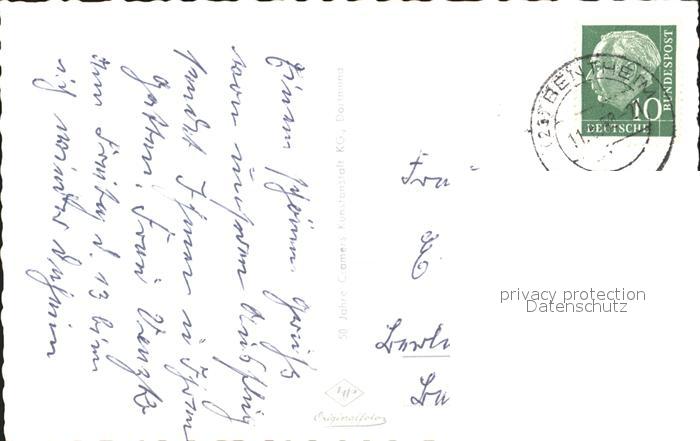 Einen schönen Gruß
von unserem Ausflug
sendet Ihnen u. Ihrem
Gatten, Frau
am Freitag d. 13 bin
ich wieder daheim
50 Jahre Cramers Kunstanstalt KG., Dortmund
Originalfoto
BUNDESPOST
10
DEUTSCHE
BENTHEIM
Frau
Berli
privacy protection
Datenschutz